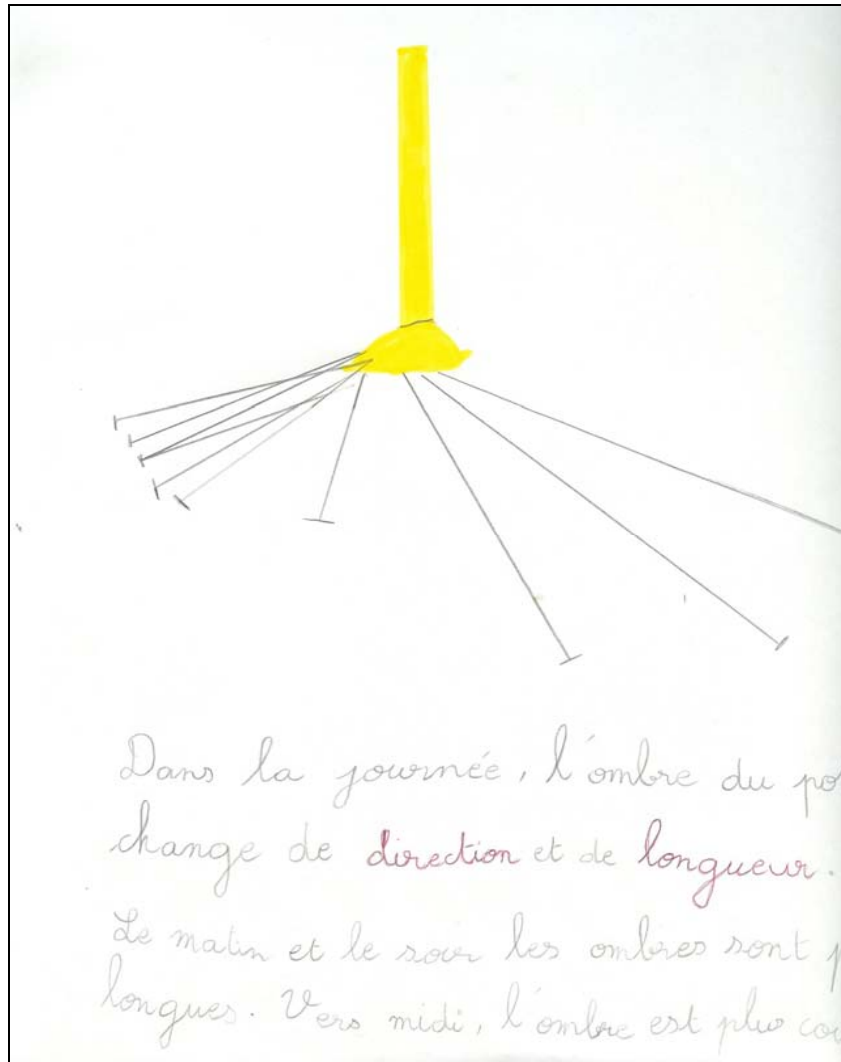 Dans la journée, l'ombre du po
change de direction et de longueur.
Le matin et le soir les ombres sont p
longues. Vers midi, l'ombre est plus cou